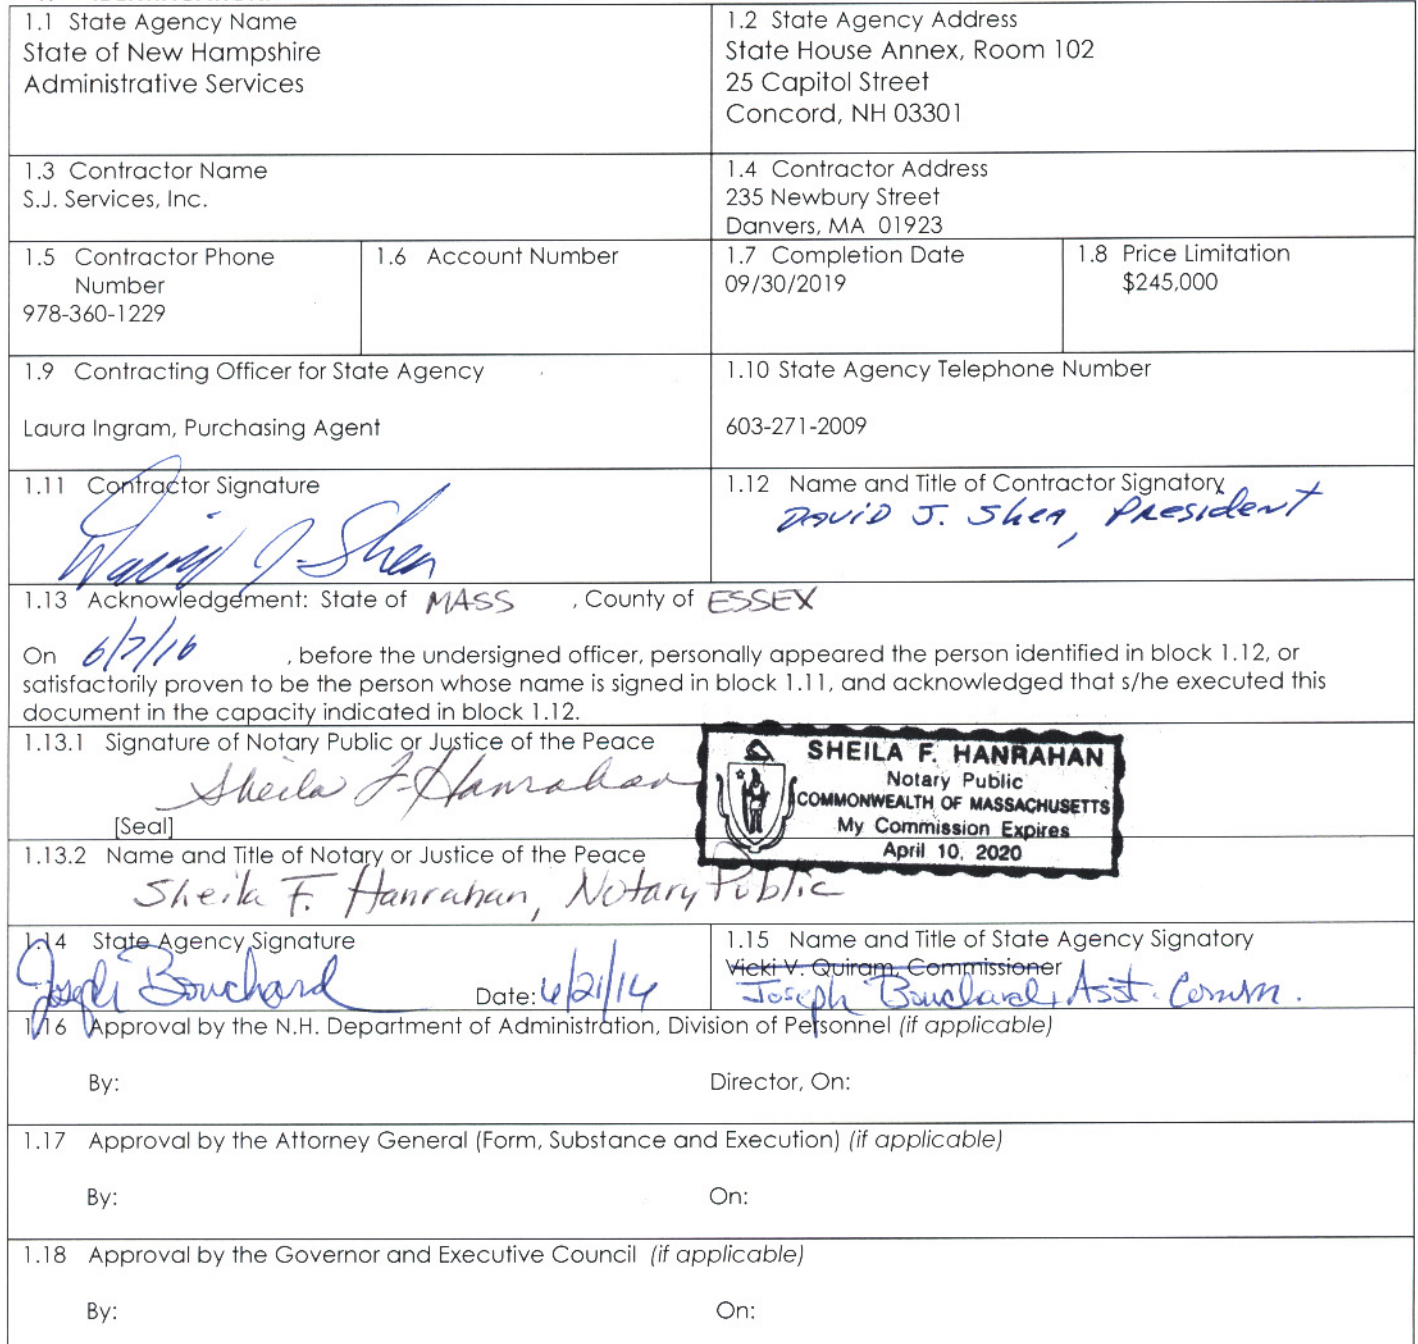 1.1 State Agency Name
State of New Hampshire
Administrative Services
1.2 State Agency Address
State House Annex, Room 102
25 Capitol Street
Concord, NH 03301
1.3 Contractor Name
S.J. Services, Inc.
1.4 Contractor Address
235 Newbury Street
Danvers, MA 01923
1.5 Contractor Phone
Number
978-360-1229
1.6 Account Number
1.7 Completion Date
09/30/2019
1.8 Price Limitation
$245,000
1.9 Contracting Officer for State Agency
Laura Ingram, Purchasing Agent
1.10 State Agency Telephone Number
603-271-2009
1.11 Contractor Signature
David J. Shea
1.12 Name and Title of Contractor Signatory
DAVID J. Shea, PResident
1.13 Acknowledgement: State of MASS , County of ESSEX
On 6/7/16 , before the undersigned officer, personally appeared the person identified in block 1.12, or
satisfactorily proven to be the person whose name is signed in block 1.11, and acknowledged that s/he executed this
document in the capacity indicated in block 1.12.
1.13.1 Signature of Notary Public or Justice of the Peace
Sheila F. Hanrahan
[Seal]
SHEILA F. HANRAHAN
Notary Public
COMMONWEALTH OF MASSACHUSETTS
My Commission Expires
April 10, 2020
1.13.2 Name and Title of Notary or Justice of the Peace
Sheila F. Hanrahan, Notary Public
1.14 State Agency Signature
Joseph Bouchard Date: 6/21/16
1.15 Name and Title of State Agency Signatory
Vicki V. Quiram, Commissioner
Joseph Bouchard, Asst. Comm.
1.16 Approval by the N.H. Department of Administration, Division of Personnel (if applicable)
By: Director, On:
1.17 Approval by the Attorney General (Form, Substance and Execution) (if applicable)
By: On:
1.18 Approval by the Governor and Executive Council (if applicable)
By: On: